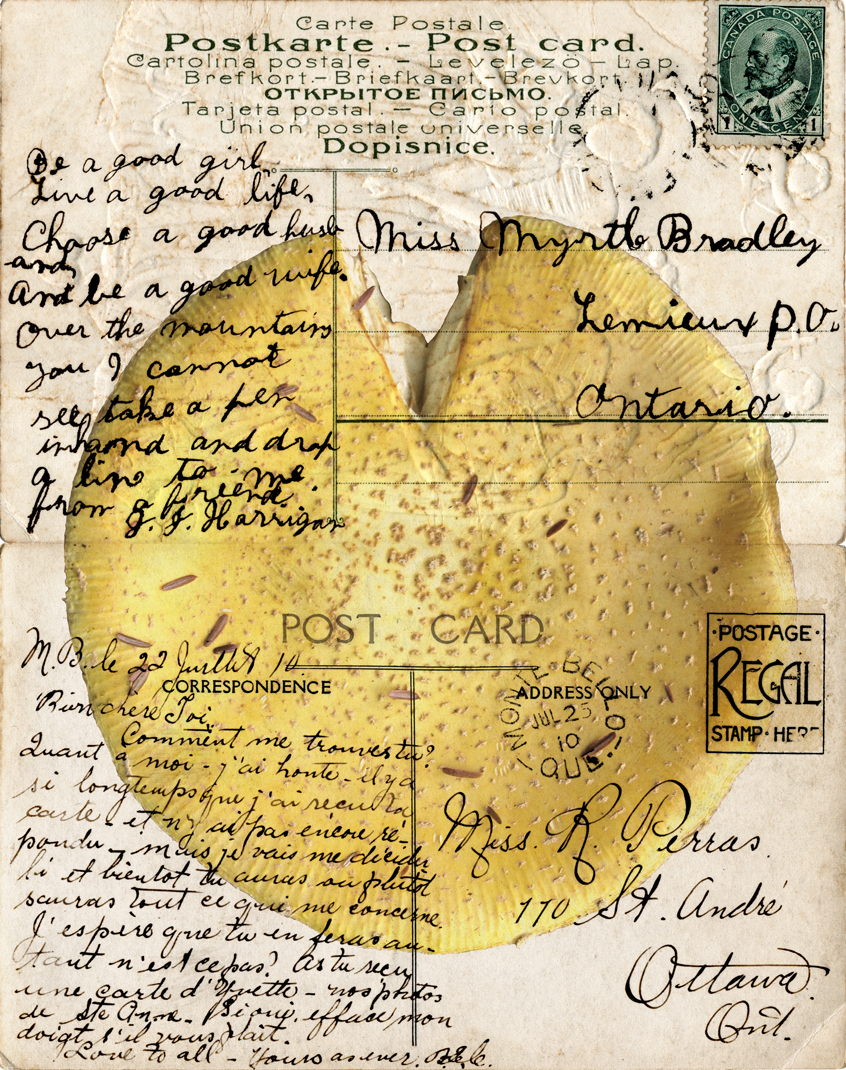 Carte Postale.
Postkarte.-Post card.
Cartolina postale. — Levelezö — Lap.
Brefkort.-Briefkaart.-Brevkort.
ОТКРЫТОЕ ПИСЬМО.
Tarjeta postal. — Carto postal.
Union postale universelle.
Dopisnice.
CANADA POSTAGE
ONE CENT
1 1
Be a good girl
Live a good life,
Choose a good husb
and
And be a good wife.
Over the mountains
you I cannot
see take a pen
in hand and drop
a line to me
from a friend.
J. J. Harrigan
Miss Myrtle Bradley
Lemieux P.O.
Ontario.
POST CARD
CORRESPONDENCE
ADDRESS ONLY
·POSTAGE·
REGAL
STAMP·HERE
MONTE BELLO
JUL 25
10
QUE.
M.B. le 22 Juillet 10
Bien chère Toi,
Comment me trouves tu?
Quant à moi - j'ai honte - il y a
si longtemps que j'ai recu ta
carte - et n'y ai pas encore ré-
pondu - mais je vais me décider
et bientot tu auras ou plutôt
sauras tout ce qui me concerne.
J'espère que tu en feras au-
tant n'est ce pas? As tu recu
une carte d'Yvette - nos photos
de Ste Anne. efface mon
doigt s'il vous plait.
Love to all - Yours as ever.
Miss. R. Perras.
170 St. André
Ottawa.
Ont.